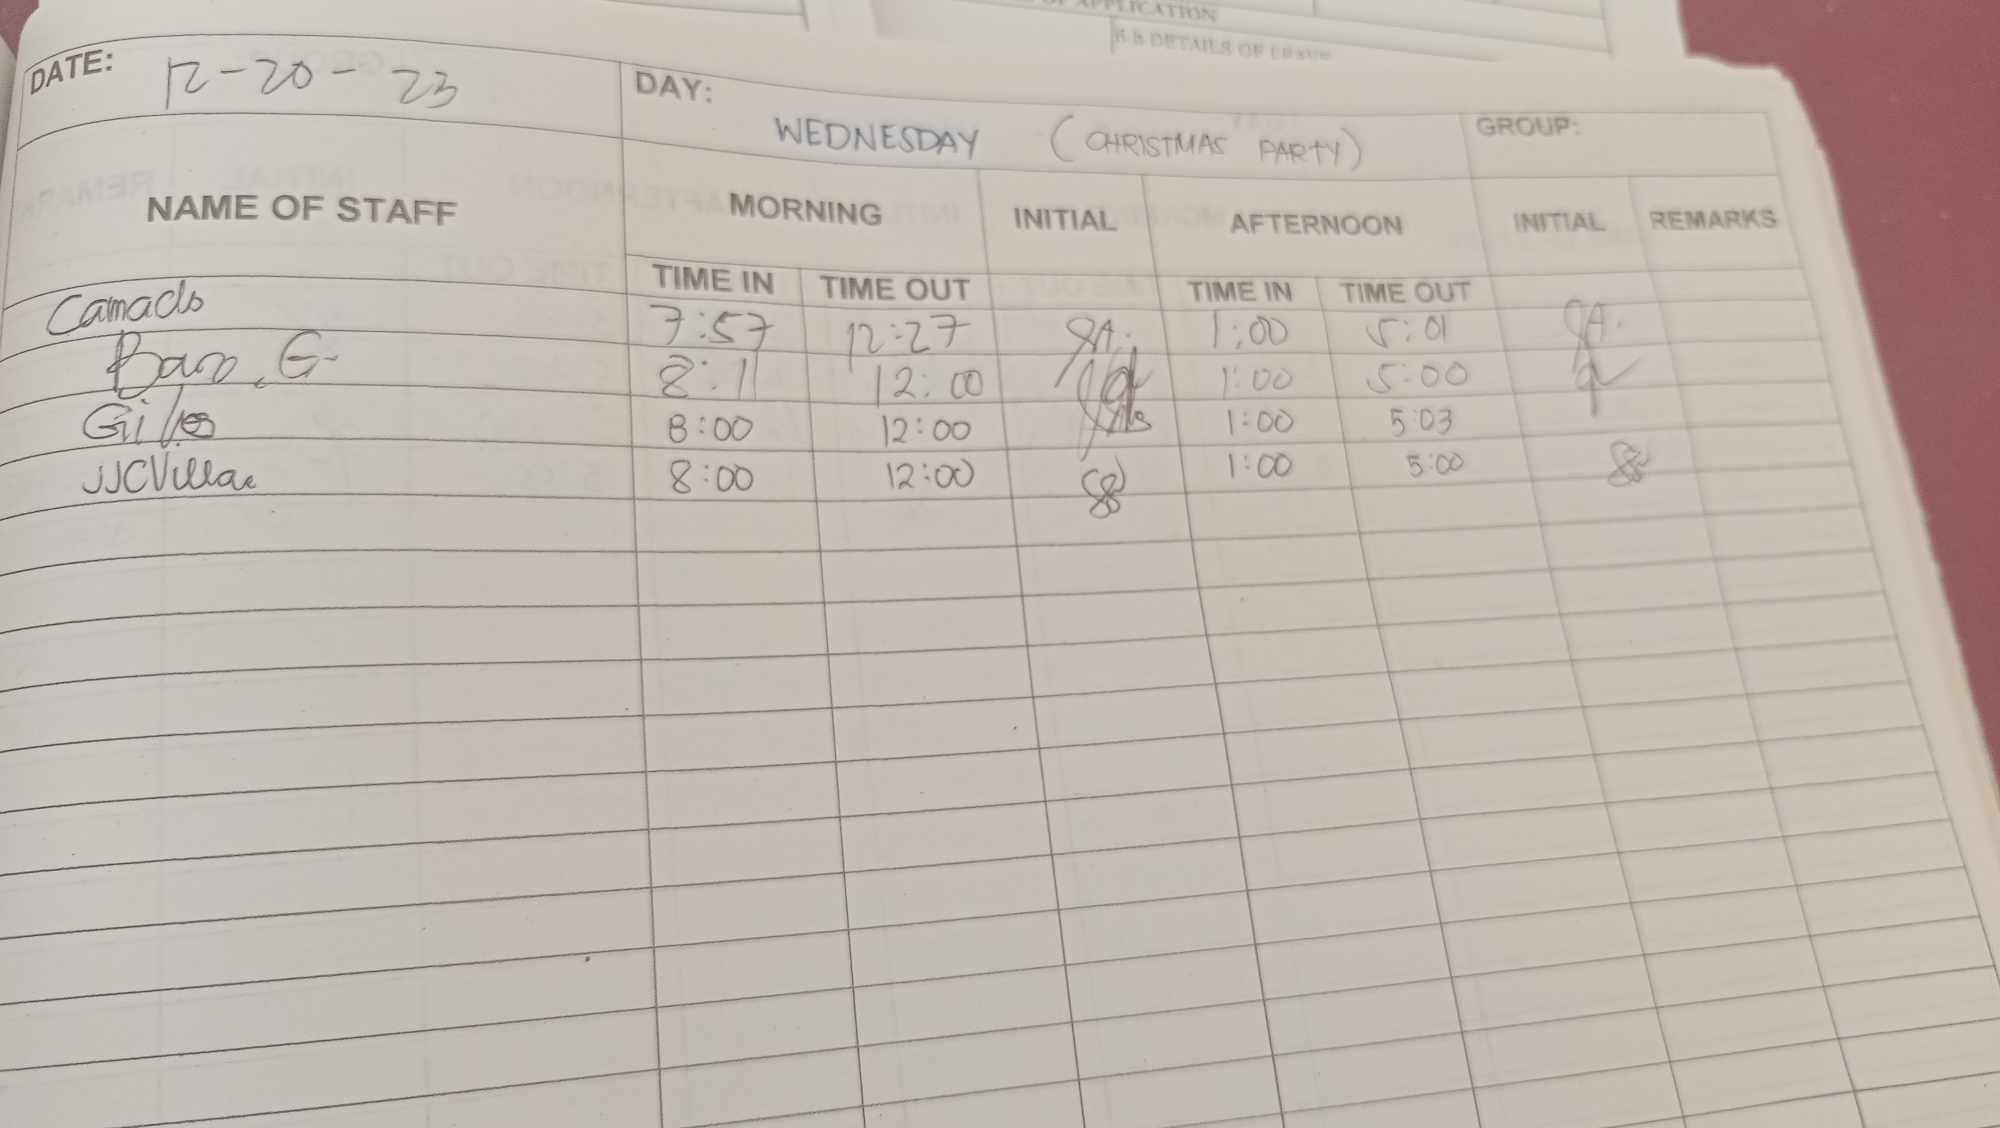 OF APPLICATION
DETAILS OF LEAVE
DATE: 12-20-23 DAY: WEDNESDAY (CHRISTMAS PARTY) GROUP:
NAME OF STAFF MORNING INITIAL AFTERNOON INITIAL REMARKS
TIME IN TIME OUT TIME IN TIME OUT
7:57 12:27 1:00 5:01
G 8:11 12:00 1:00 5:00
8:00 12:00 1:00 5:03
JJCVillar 8:00 12:00 1:00 5:00